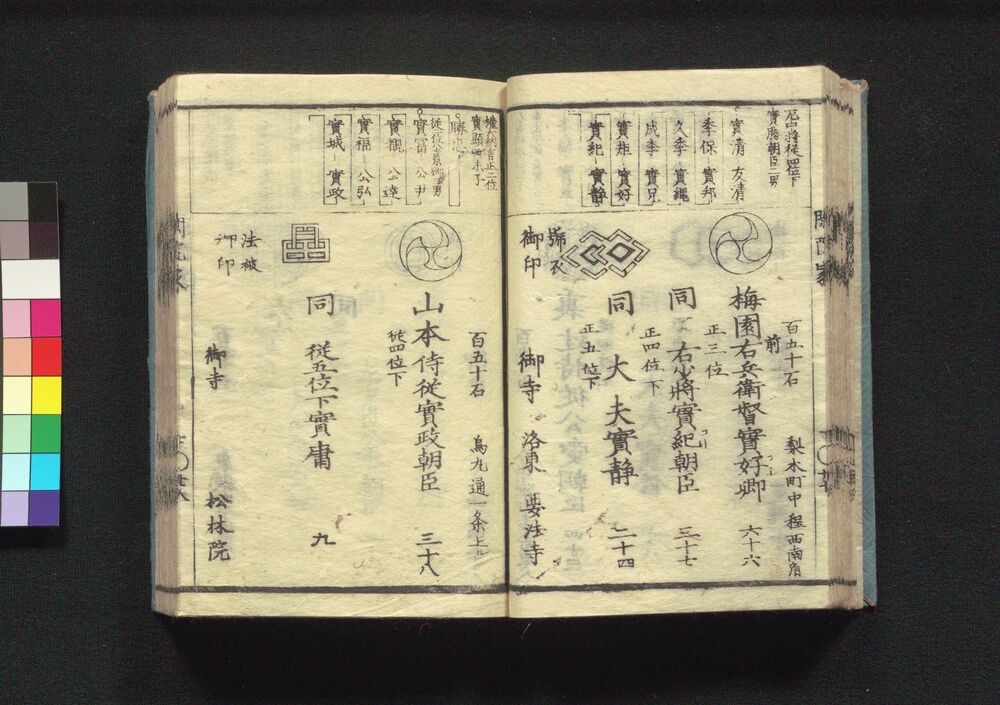 左中将従四位下
實勝朝臣二男
實清 友清
季保 實邦
久季 實縄
成季 實兄
實矩 實好
實紀 實静
百五十石 梨木町中程西南角
前
梅園右兵衛督實好卿 六十六
正三位
同 右少將實紀朝臣 三十七
正四位下
同 大夫實静 二十四
正五位下
御印
御寺 洛東 要法寺
閑院家
權大納言正二位
實顯卿末子
勝忠
従二位公景卿男
實富 公尹
實觀 公達
實福 公弘
實城 實政
百五十石 烏丸通一条上ル
山本侍從實政朝臣 三十八
従四位下
同 從五位下實庸 九
法被
御印
御寺 松林院
閑院家